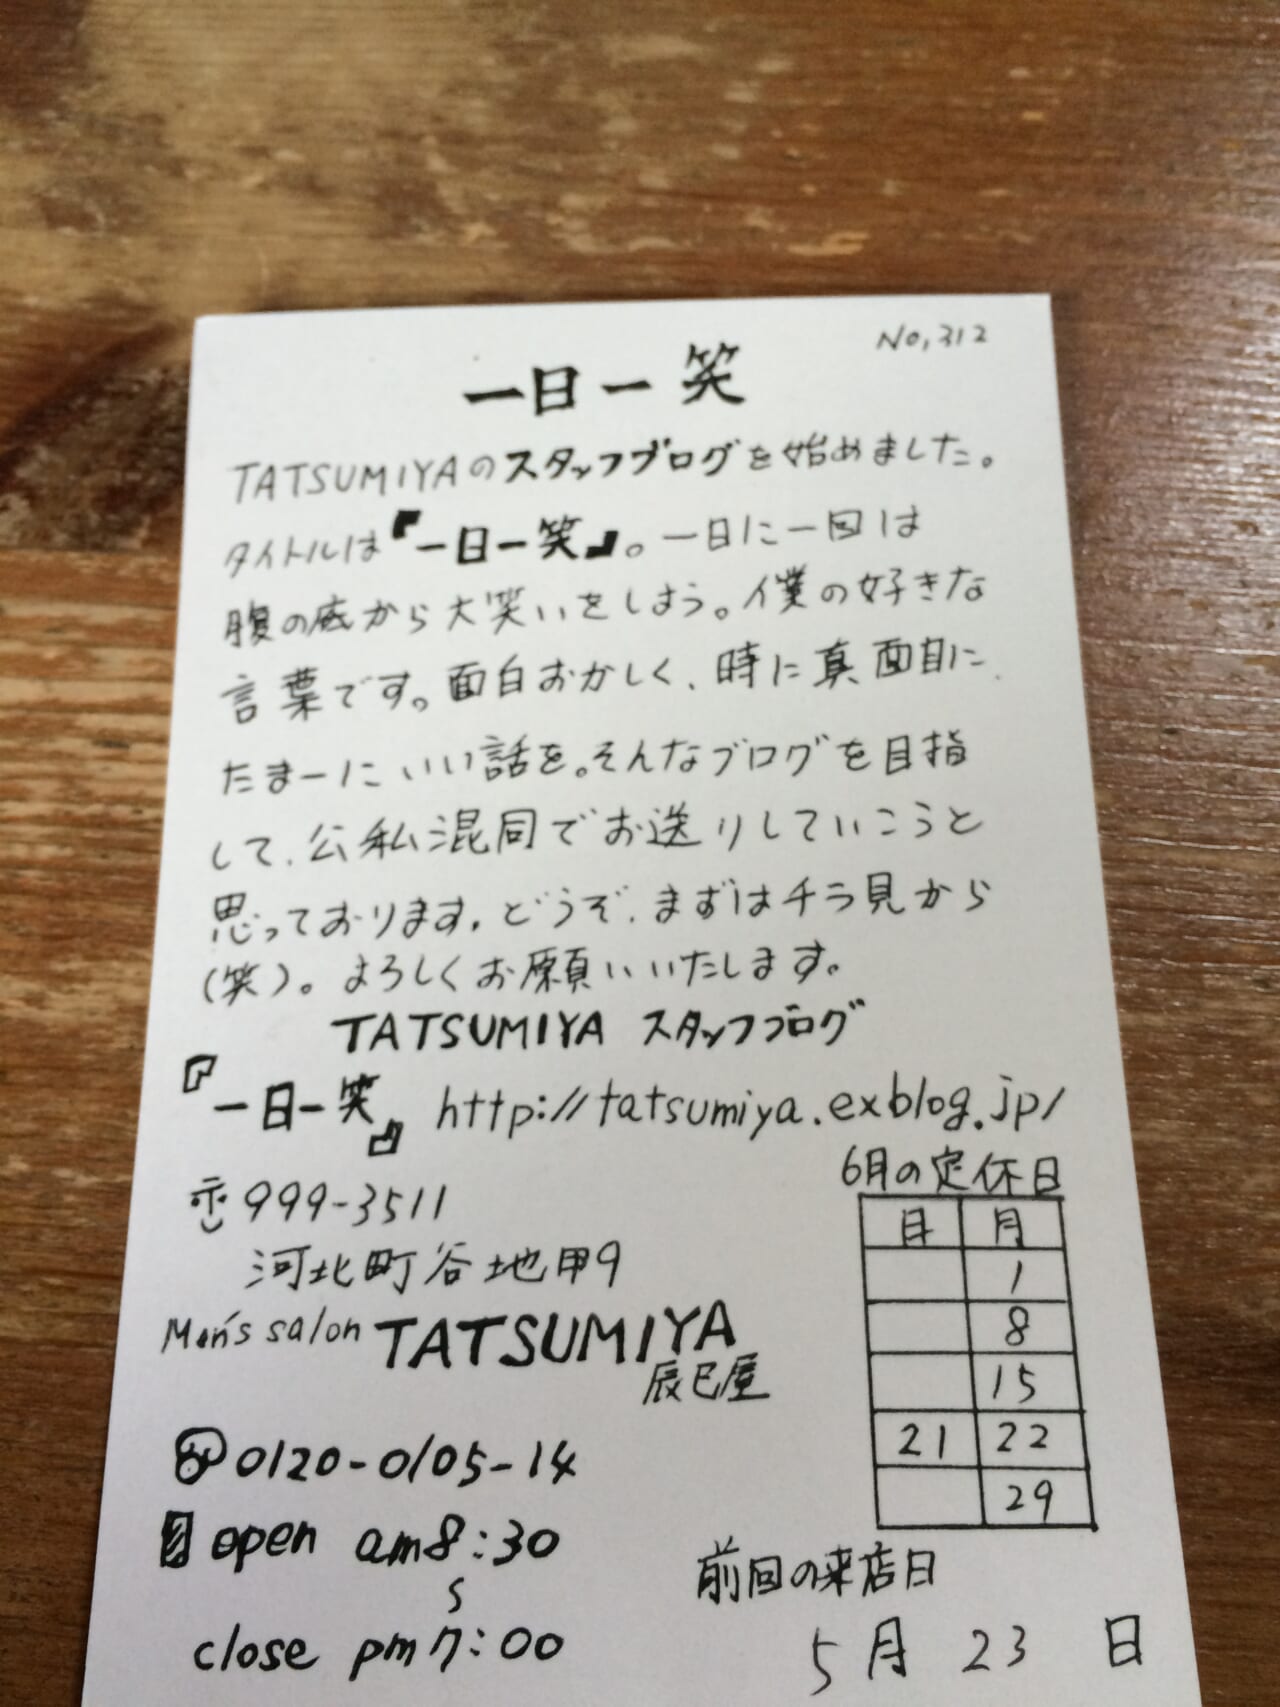 No,312
一日一笑
TATSUMIYAのスタッフブログを始めました。
タイトルは『一日一笑』。一日に一回は
腹の底から大笑いをしよう。僕の好きな
言葉です。面白おかしく、時に真面目に、
たまーにいい話を。そんなブログを目指
して、公私混同でお送りしていこうと
思っております。どうぞ、まずはチラ見から
(笑)。よろしくお願いいたします。
TATSUMIYA スタッフブログ
『一日一笑』 http://tatsumiya.exblog.jp/
999-3511
河北町谷地甲9
Men's salon TATSUMIYA
辰巳屋
0120-0105-14
open am8:30
〜
close pm7:00
6月の定休日
日 月
1
8
15
21 22
29
前回の来店日
5月 23 日